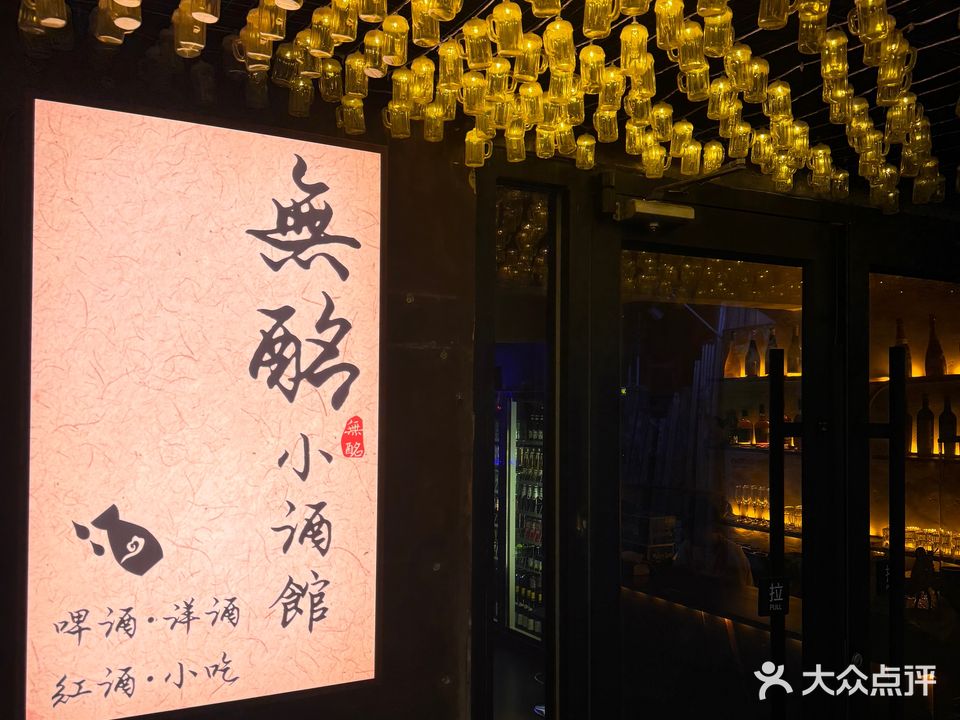 無酩小酒館
無酩
啤酒·洋酒
紅酒·小吃
拉
PULL
大众点评